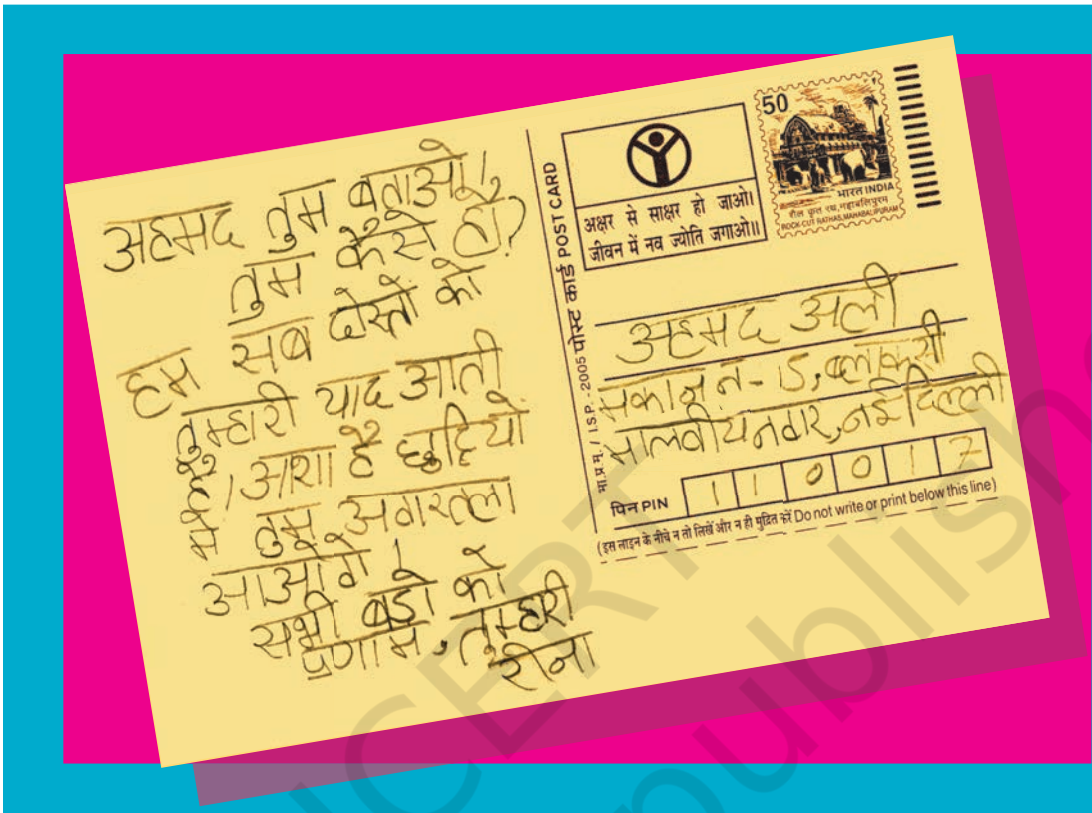 अहमद तुम बताओ,
तुम कैसे हो?
हम सब दोस्तों को
तुम्हारी याद आती
है। आशा है छुट्टियों
में तुम अगरतला
आओगे।
सभी बडो को
प्रणाम, तुम्हरी
रीना
मा.प्र.मु. / I.S.P. 2005 पोस्ट कार्ड POST CARD
अक्षर से साक्षर हो जाओ।
जीवन में नव ज्योति जगाओ॥
50
भारत INDIA
शैल कृत रथ, महाबलिपुरम
ROCK-CUT RATHAS, MAHABALIPURAM
अहमद अली
मकान न - 15, ब्लाक सी
मालवीय नगर, नई दिल्ली
पिन PIN 110017
(इस लाइन के नीचे न तो लिखें और न ही मुद्रित करें Do not write or print below this line)
NCERT
publish